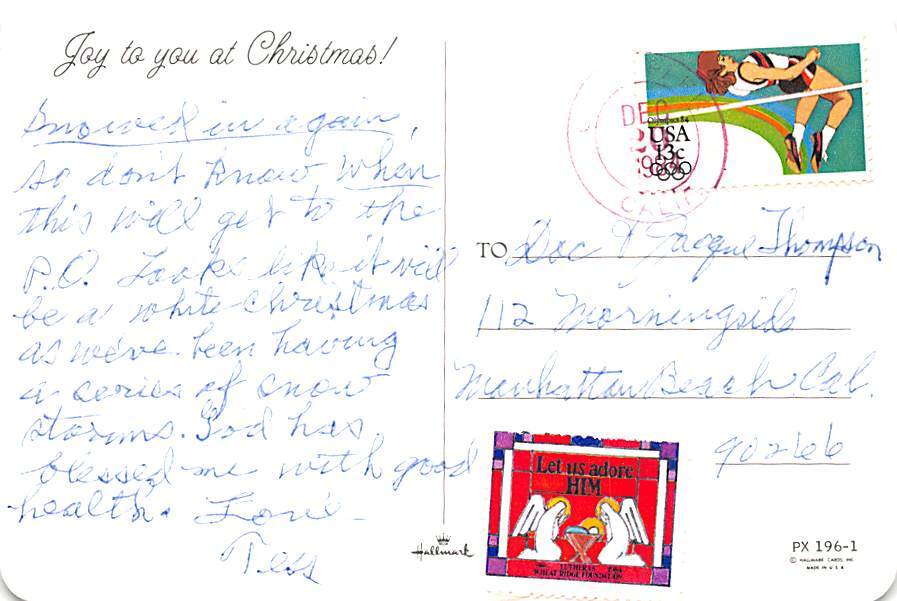 Joy to you at Christmas!
Snowed in again,
so don't know when
this will get to the
P.O. Looks like it will
be a white Christmas
as we've been having
a series of snow
storms. God has
blessed me with good
health. Love -
Tess
Hallmark
DEC
CALIF
Olympics 84
USA
13c
TO Doc & Jacque Thompson
112 Morningside
Manhattan Beach Cal.
90266
Let us adore
HIM
LUTHERAN 1984
WHEAT RIDGE FOUNDATION
PX 196-1
© HALLMARK CARDS, INC.
MADE IN U.S.A.